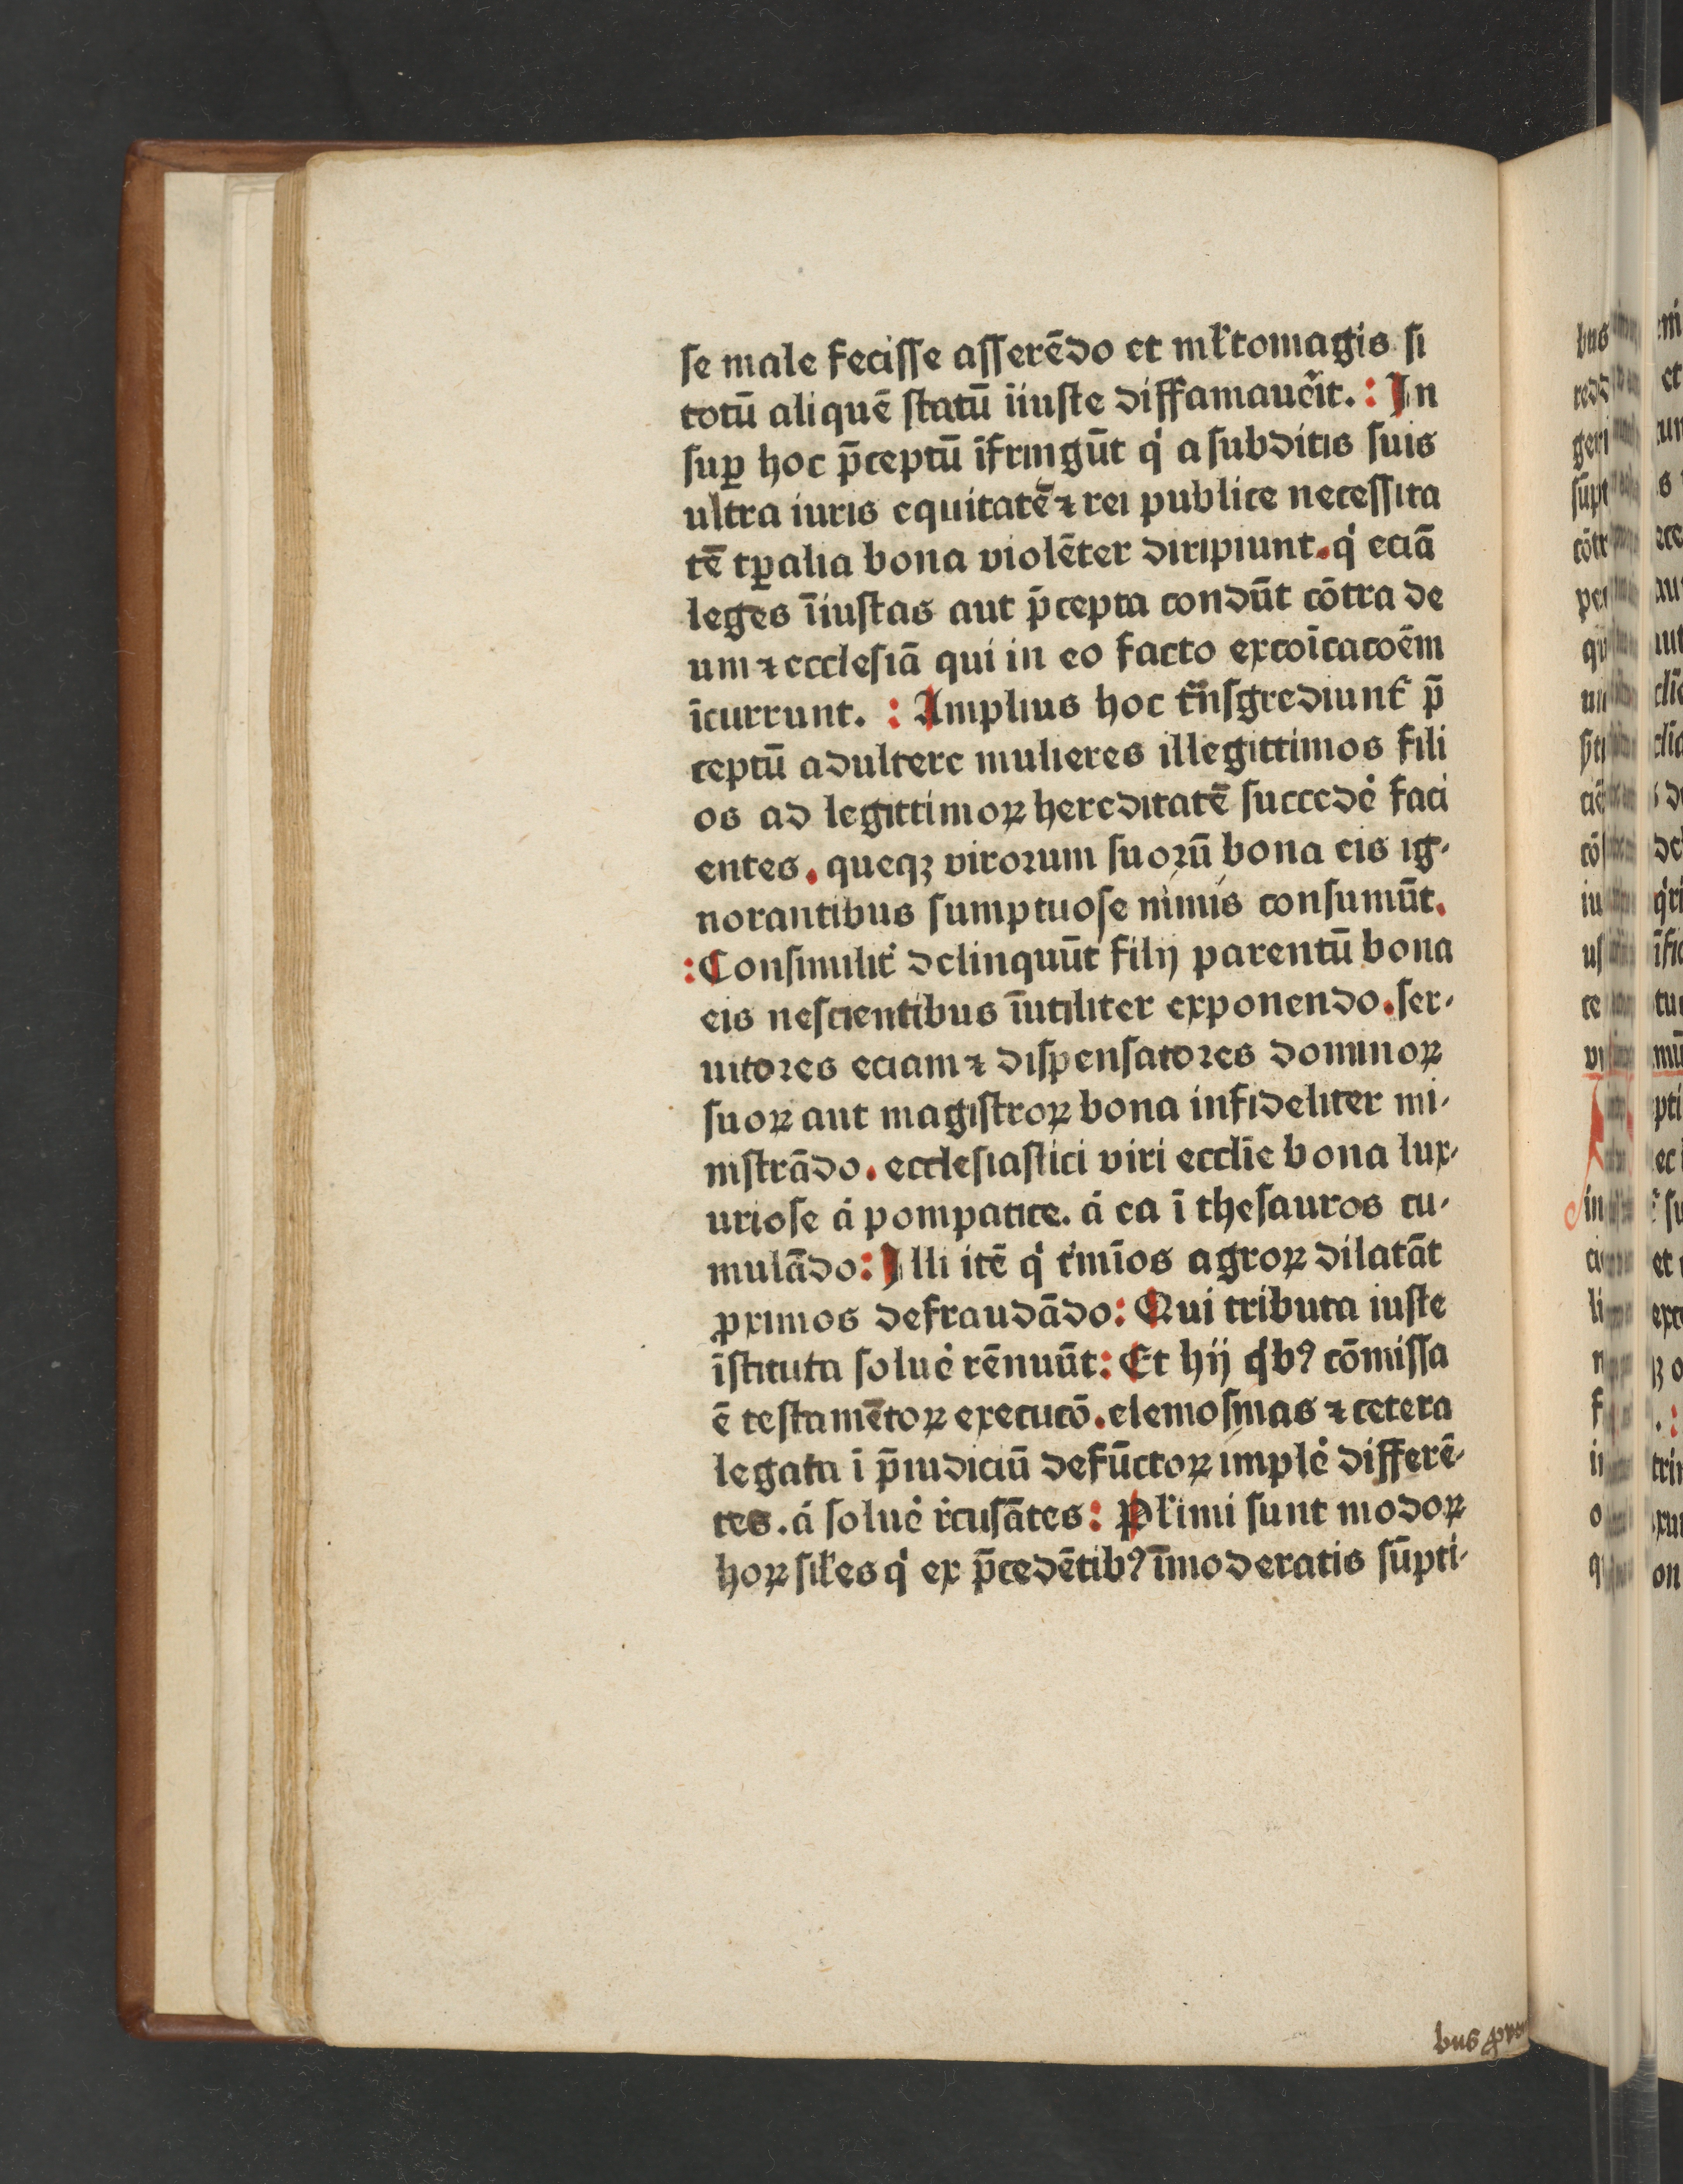 se male fecisse asserēdo et ml̄tomagis si
totū aliquē statū īiuste diffamauer̄it. : In
suꝑ hoc p̄ceptū īfringūt qͥ a subditis suis
ultra iuris equitatē ⁊ rei publice necessita
tē tꝑalia bona violēter diripiunt. qͥ eciā
leges īiustas aut p̄cepta condūt cōtra de
um ⁊ ecclesiā qui in eo facto excoīcatoēm
īcurrunt. : Amplius hoc trn̄sgrediunt᷑ p̄
ceptū adultere mulieres illegittimos fili
os ad legittimoꝝ hereditatē succedē faci
entes. queqꝫ virorum suorū bona eis ig-
norantibus sumptuose nimis consumūt.
: Consimilit᷑ delinquūt filij parentū bona
eis nescientibus īutiliter exponendo. ser-
uitores eciam ⁊ dispensatores dominoꝝ
suoꝝ aut magistroꝝ bona infideliter mi-
nistrādo. ecclesiastici viri ecclīe bona lux-
uriose á pompatice. á ea ī thesauros cu-
mulādo: Illi itē qͥ t᷑mīos agroꝝ dilatāt
ꝓximos defraudādo: Qui tributa iuste
īstituta soluē rēnuūt: Et hij qͥbꝰ cōmissa
ē testamētoꝝ executō. elemosinas ⁊ cetera
legata ī p̄iudiciū defūctoꝝ implē differē-
tes. á soluē rͨusātes: Pl̄imi sunt modoꝝ
hoꝝ sil̄es qͥ ex p̄cedētibꝰ īmoderatis sūpti-
bus